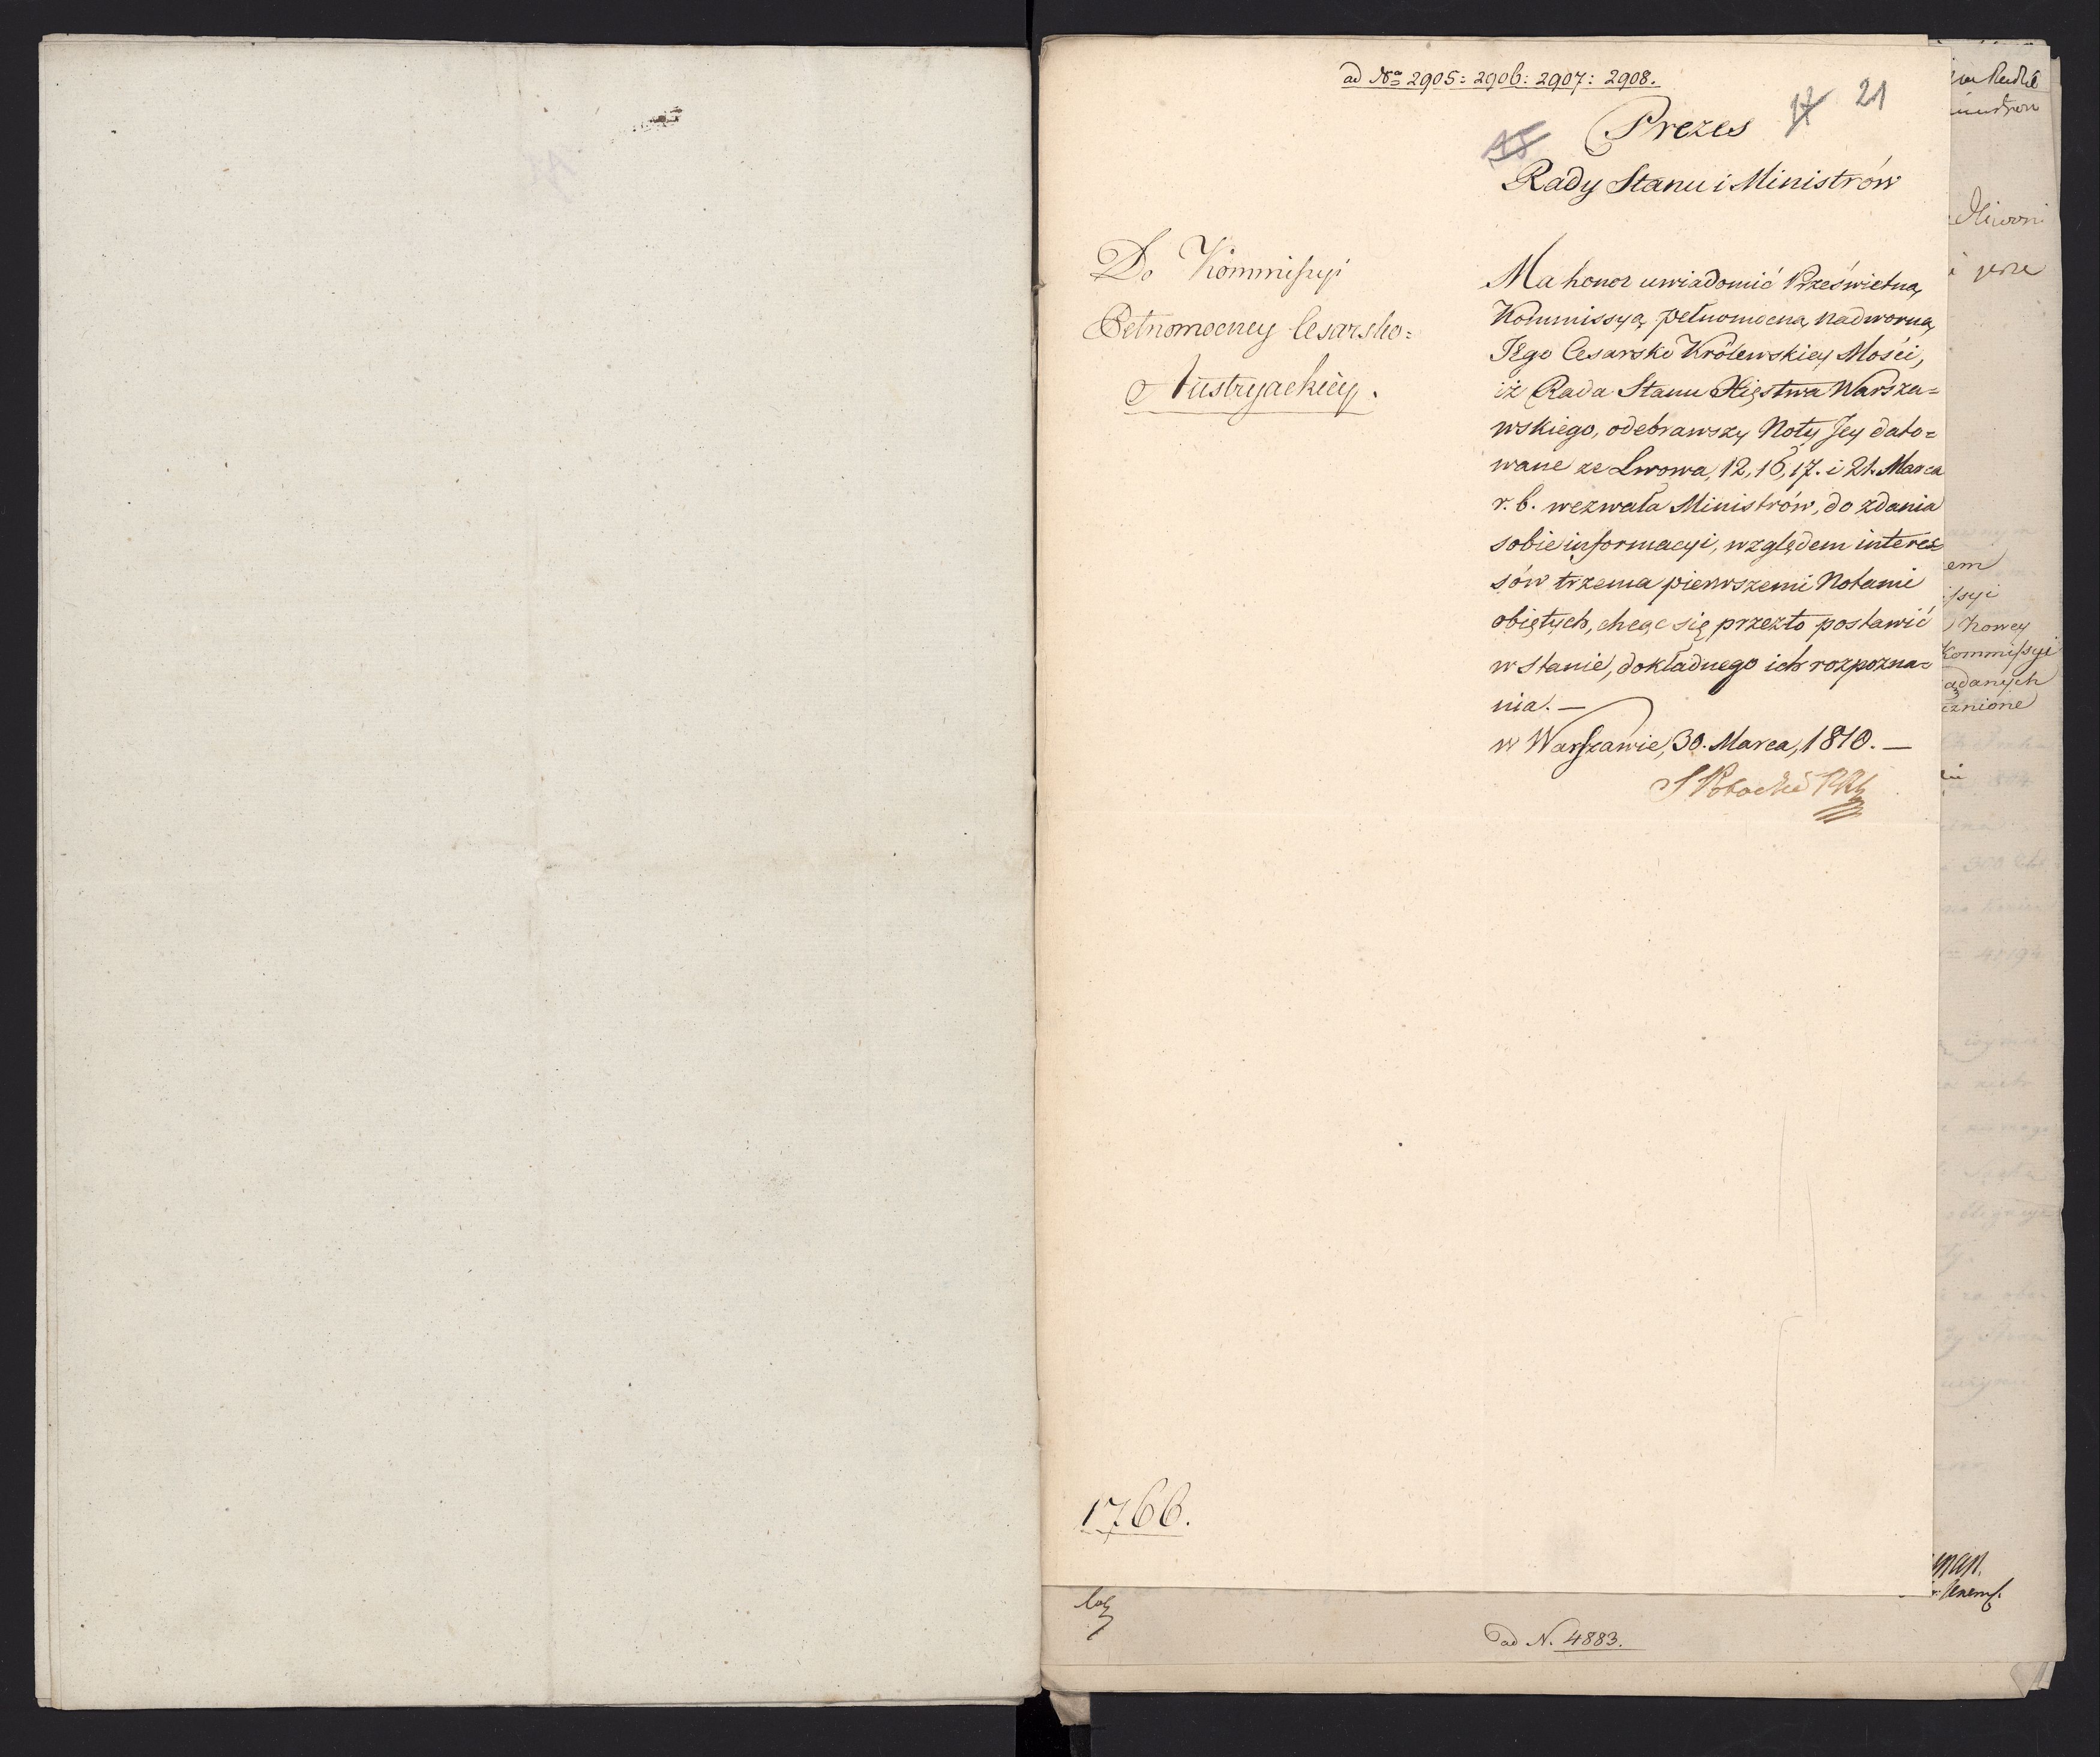 ad Nra 2905: 2906: 2907: 2908.
17 21
18
Prezes
Rady Stanu i Ministrów
Do Kommissyi
Pełnomocney Cesarsko=
Austryackiey.
Ma honor uwiadomić Prześwietną
Kommissyą pełnomocną nadworną
Jego Cesarsko Królewskiey Mości,
iż Rada Stanu Xięstwa Warsza=
wskiego, odebrawszy Noty Jey dato=
wane ze Lwowa, 12, 16, 17. i 21. Marca
r. b. wezwała Ministrów, do zdania
sobie informacyi, względem interes=
sów trzema pierwszemi Notami
obiętych, chcąc się przezto postawić
w stanie, dokładnego ich rozpozna=
nia. —
w Warszawie, 30. Marca, 1810. —
S Potocki
1766.
ad N. 4883.
em
nowey
Kommissyi